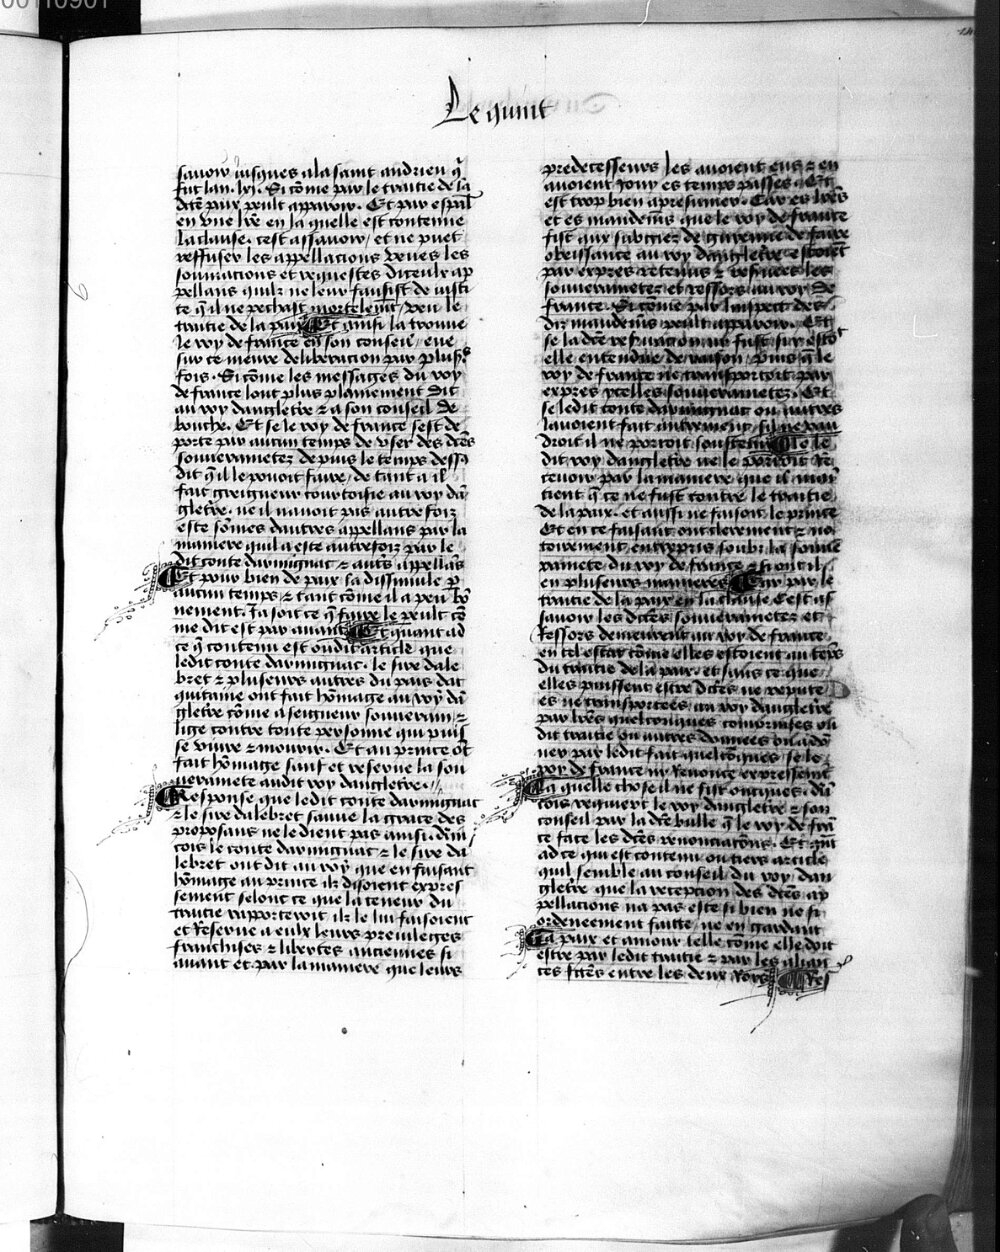 Le quint
sauoir iusques a la saint andrieu q̄
fut lan .lxj. Si cōme par le traitie de la
dc̄te paix peult apparoir. Et par espāl
en vne lr̄e en la quelle est contenue
la clause. cest assauoir / et ne puet
reffuser les appellacions veues les
sommacions et requestes diceulx ap
pellans quilz ne leur fausist de iusti
te q̄ il ne pechast mortelemt̄ / veu le
traitie de la paix Et ainsi la trouue
le roy de france en son conseil / eue
sur ce meure deliberacion par plus̄rs
fois. Si cōme les messages du roy
de france lont plus plainement dit
au roy dangletr̄e ⁊ a son conseil de
bouche. Et se le roy de france sest de
porte par aucun temps de vser des dc̄tes
souuerainetez depuis le temps dess᷒
dit q̄ il le pouoit faire / de tant a il
fait greigneur courtoisie au roy dā
gletr̄e. ne il nauoit pas autrefoiz
este sōmes dautres appellans par la
maniere quil a este autrefoiz par le
dit conte darmignac ⁊ autr̄s appellās
Et pour bien de paix la dissimule p̄
aucun temps ⁊ tant cōme il a peu bō
nement. Ja soit ce q̄ faire le peult cō
me dit est par auant Et quant ad
ce q̄ contenu est oudit article que
ledit conte darmignac. le sire dale
bret ⁊ pluseurs autres du pais dac
quitaine ont fait hōmage au roy dā
gletr̄e cōme a seigneur souuerain ⁊
lige contre toute personne qui puis
se viure ⁊ mourir. Et au prince ōt
fait hōmage sauf et reserue la sou
uerainete audit roy dangletr̄e.
Response que ledit conte darmignac
⁊ le sire dalebret sauue la grace des
proposans ne le dient pas ainsi. Ain
cois le conte darmignac ⁊ le sire da
lebret ont dit au roy que en faisant
hōmage au prince ilz disoient expres
sement selont ce que la teneur du
traitie rapporteroit ilz le lui faisoient
et Reserue a eulx leurs preuileges
franchises ⁊ libertes anciennes si
auant et par la maniere que leurs
predecesseurs les auoient eus ⁊ en
auoient iouy es temps passes. Et
est trop bien apresumer. Car es lr̄es
et es mandemēs que le roy de france
fist aux subgiez de guienne de faire
obeissance au roy dangletr̄e estoient
par expres retenus ⁊ reserues les
souuerainetez et ressors au roy de
france. Si cōme par linspect̄ des
diz mandemēs peult apparoir. Et
se la dc̄te reseruacion ny fust si y estoit
elle entendue de raison / puis q̄ le
roy de france ne transportoit par
expres ycelles souuerainetez. Et
se ledit conte darmignac ou autres
lauoient fait autrement / fil ne vau
droit il ne portoit soustenir Ne le
dit roy dangletr̄e ne le porroit re
ceuoir par la maniere que il main
tient q̄ ce ne fust contre le traitie
de la paix. et aussi ne faisoit le prince
Et en ce faisant ont clerement ⁊ no
toirement entrepris soubz la souue
rainete du roy de france ⁊ si ont il
en pluseurs manieres Car par le
traitie de la paix en la clause Cest as
sauoir les dc̄tes souuerainetez et
Ressors demeurent au roy de france
en tel estat cōme elles estoient au tēps
du traitie de la paix. et sans ce que
elles puissent estre dc̄tes ne repute
es ne transportees au roy dangletr̄e
par lr̄es quelconques comprinses ou
dit traitie ou autres donnees ou a dō
ner par ledit fait quelcōques se le
roy de france ny renonce expressemt̄
La quelle chose il ne fist oncques. Ain
cois requiert le roy dangletr̄e ⁊ son
conseil par la dc̄te bulle q̄ le roy de frā
ce face les dc̄tes renonciacōns. Et quāt
ad ce qui est contenu ou tiers article
quil semble au conseil du roy dan
gletr̄e que la recepcion des dc̄tes ap
pellacions na pas este si bien ne si
ordeneement faitte / ne en gardant
La paix et amour telle cōme elle doit
estre par ledit traitie ⁊ par les alian
ces fc̄tes entre les deux Rois Res